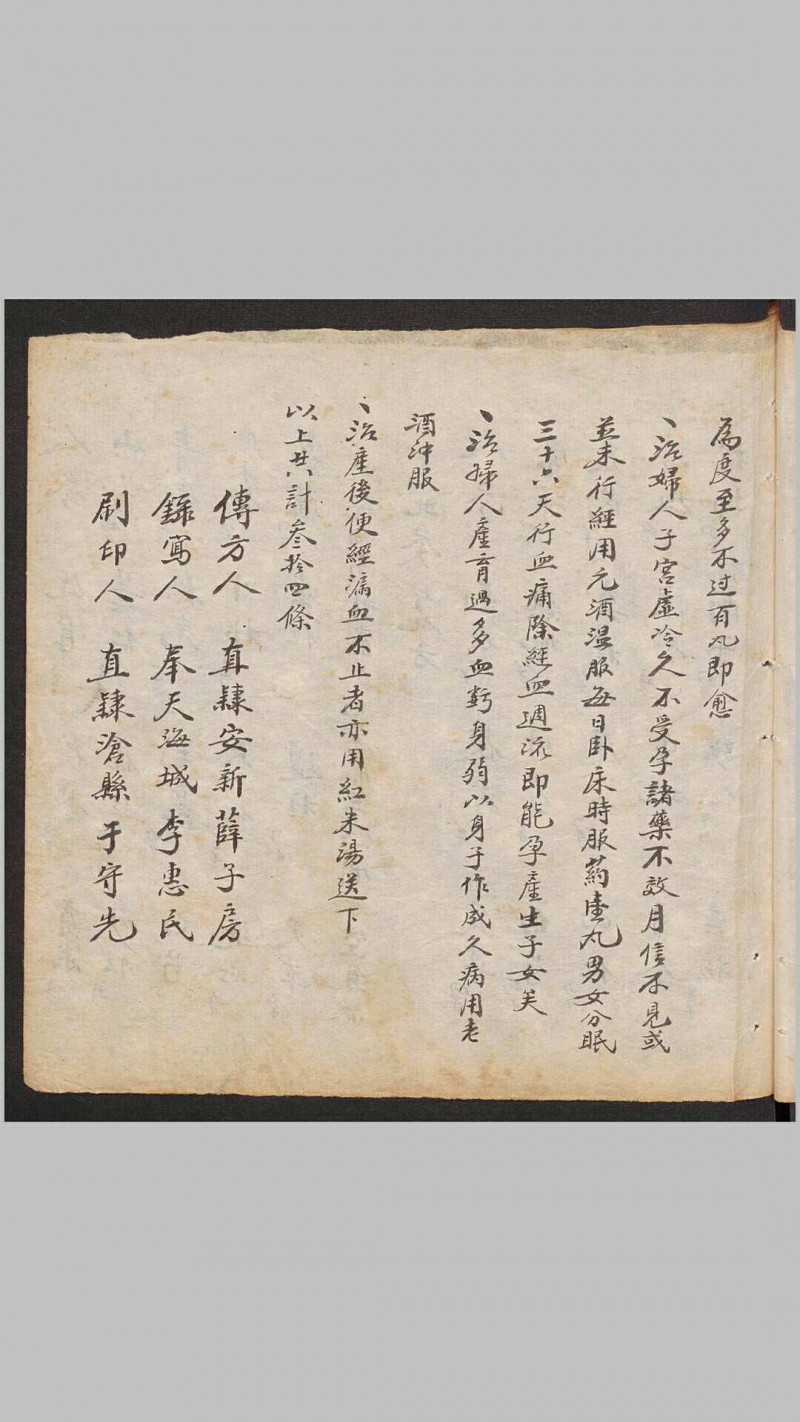 為度至多不过百丸即愈
丶治婦人子宮虛冷久不受孕諸藥不效月信不見或
並未行經用元酒温服每日卧床時服葯壹丸男女分眠
三十六天行血痛除經血週流即能孕產生子女矣
丶治婦人產育過多血虧身弱以身子作成久病用老
酒冲服
丶治產後便經漏血不止者亦用紅朱湯送下
以上共計叁拾四條
傳方人 直隸安新薛子房
錄寫人 奉天海城李惠民
刷印人 直隸滄縣于守先